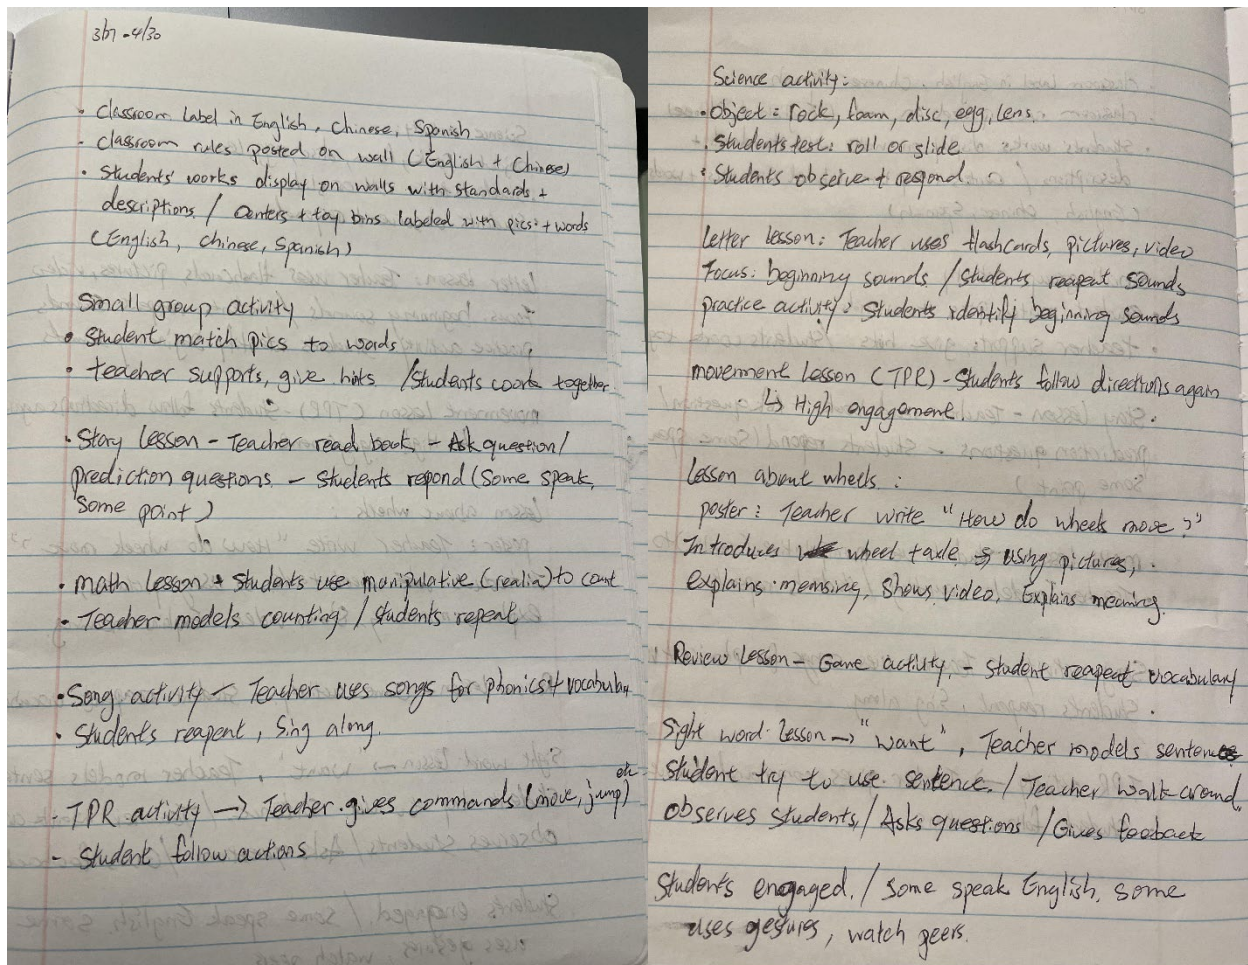 3/27 - 4/30
• Classroom Label in English, Chinese, + Spanish
• Classroom rules posted on wall (English + Chinese)
• Students' works display on walls with standards +
descriptions / Centers + toy bins labeled with pics + words
(English, Chinese, Spanish)
Small group activity
• Student match pics to words
• teacher supports, give hints / Students work together.
• Story lesson - Teacher read book - Ask question/
prediction questions - Students repond (Some speak,
Some point)
• math Lesson + Students use manipulative (realia) to count
• Teacher models counting / Students repeat
• Song activity - Teacher uses songs for phonics + vocabulary
• Students reapeat, Sing along.
- TPR activity → Teacher gives commands (move, jump) etc
- Student follow actions
Science activity:
• Object: rock, foam, disc, egg, Lens
• Students test: roll or slide
• Students observe + respond.
Letter lesson: Teacher uses flashcards, pictures, video
Focus: beginning sounds / Students reapeat sounds
practice activity: Students identify beginning sounds
movement Lesson (TPR) - Students follow directions again
↳ High engagement.
Lesson about wheels:
poster: Teacher write "How do wheels move?"
Introduces wheel + axle using pictures,
explains meaning, Shows video, Explains meaning.
Review Lesson - Game activity, - Student reapeat vocabulary
Sight word lesson → "want", Teacher models sentences
Student try to use sentence. / Teacher walk around,
observes students / Asks questions / Gives feedback
Students engaged. / Some speak English, some
uses gestures, watch peers.